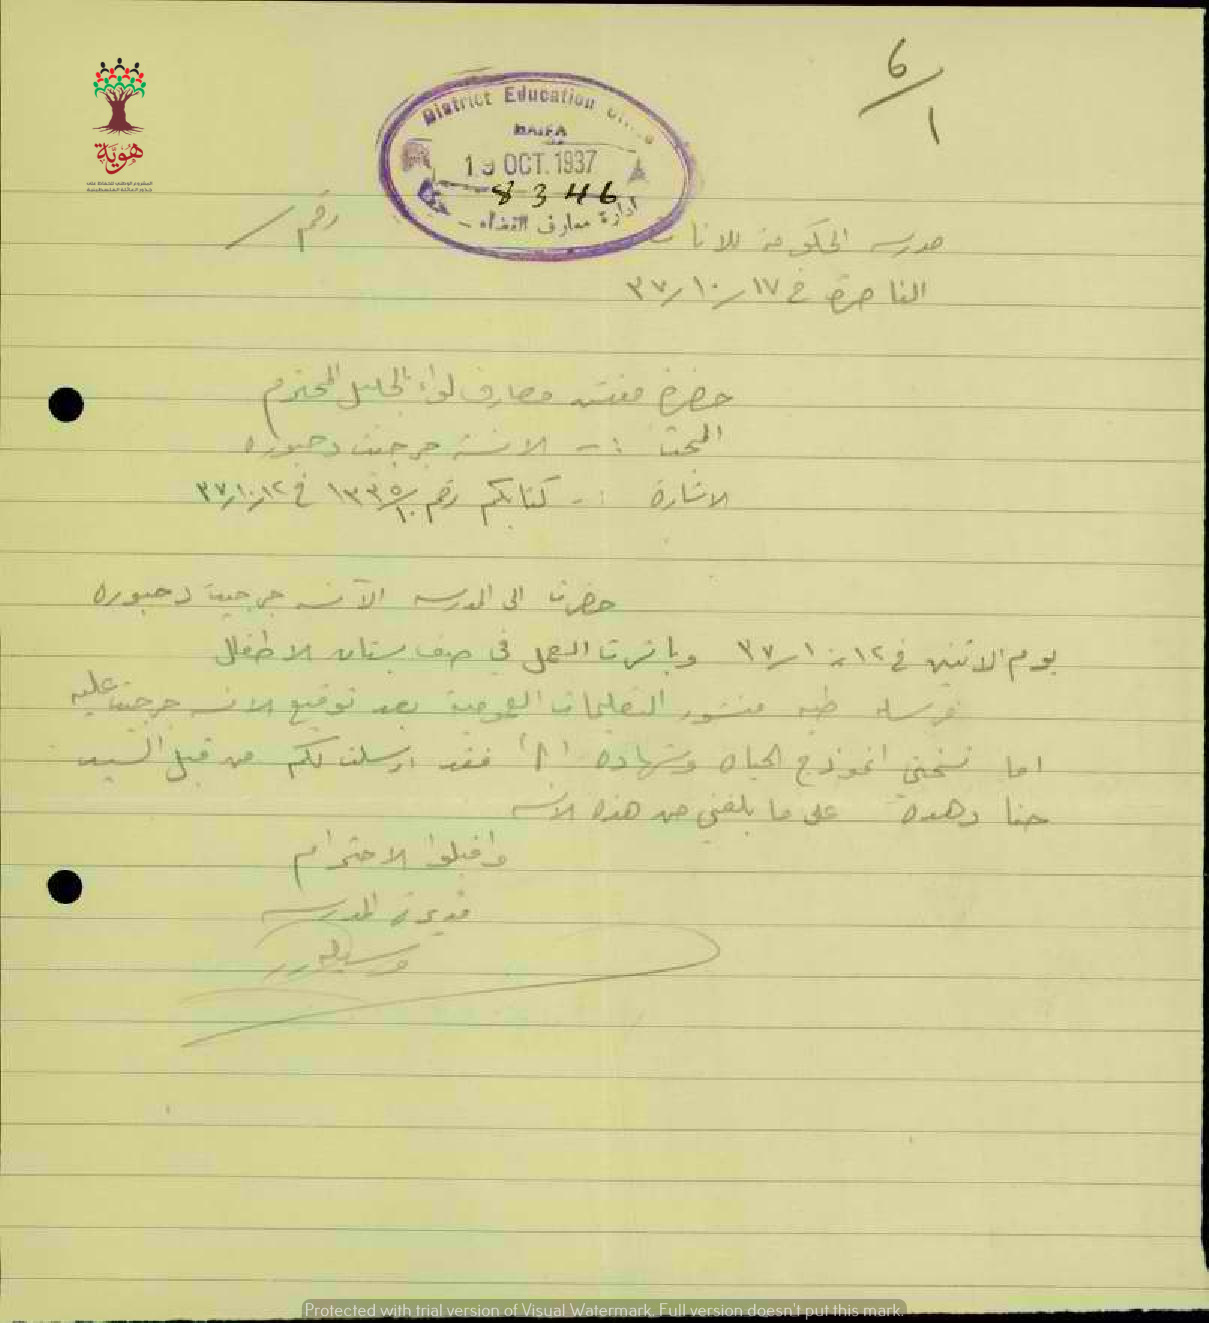 6/1
District Education Office
HAIFA
19 OCT. 1937
8346
ادارة معارف القضاء - حيفا
هويّة
مدرسة الحكومة للاناث رقم /
الناصرة في ١٧/١٠/٣٧
حضرة مفتش معارف لواء الجليل المحترم
البحث :- الانسة جرجيت دحبوره
الاشارة :- كتابكم رقم في ١٢/١٠/٣٧
حضرت الى المدرسه الآنسه جرجيت دحبوره
يوم الاثنين في ١٢/١٠/٣٧ وباشرت العمل في صف بستان الاطفال
نرسل طيه منشور التعليمات العمومية بعد توقيع الانسه جرجيت عليه
اما نسختي انموذج الحياه وشهادة فقد ارسلت لكم من قبل السيد
حنا دهده على ما بلغني من هذه الانسه
واقبلوا الاحترام
مديرة المدرسه
Protected with trial version of Visual Watermark. Full version doesn't put this mark.